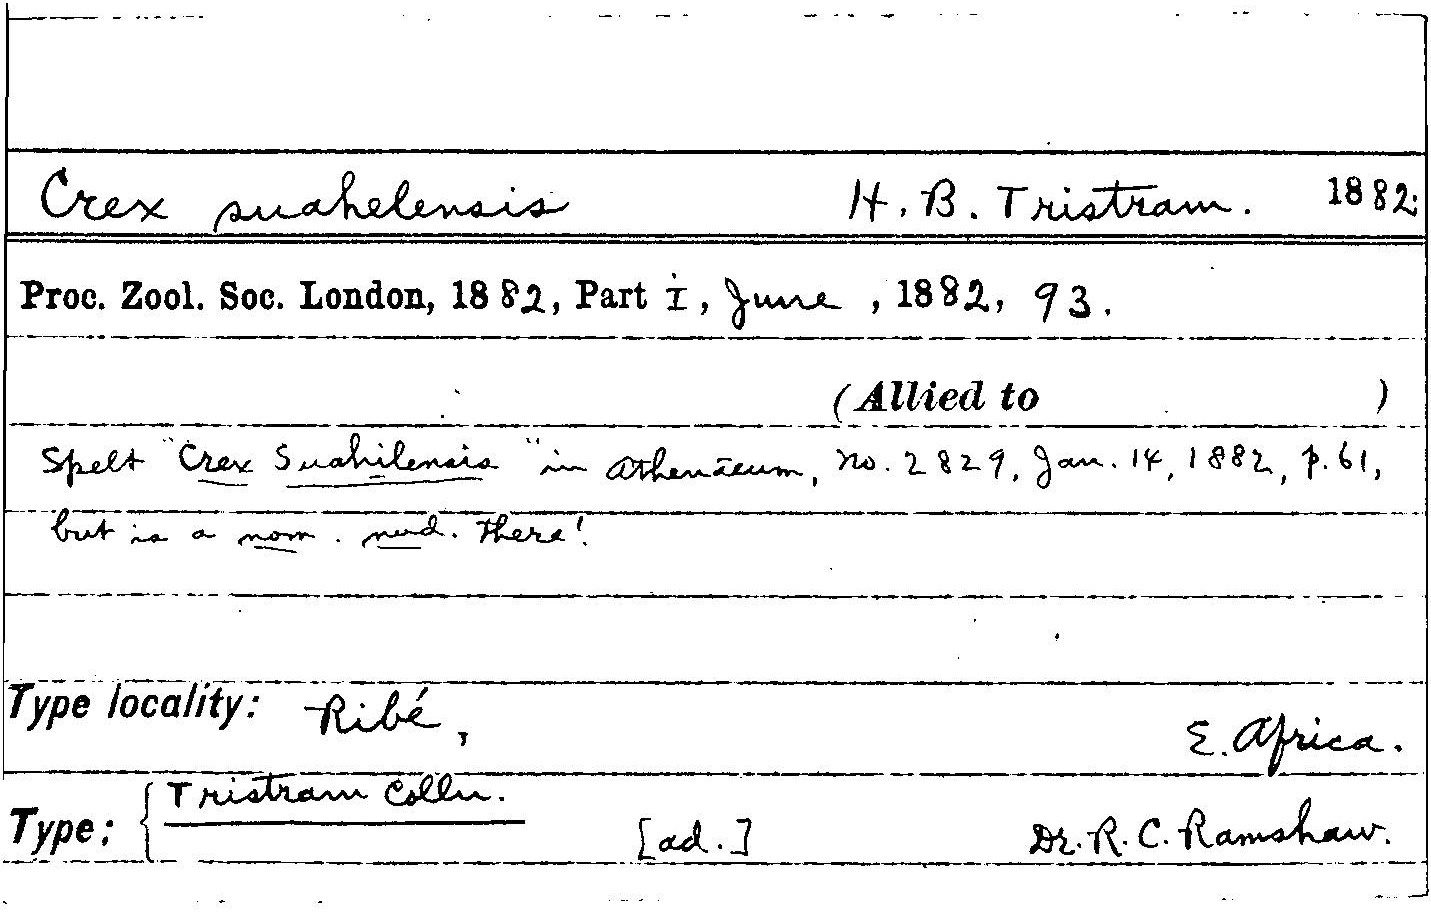 Crex suahelensis H. B. Tristram. 1882.
Proc. Zool. Soc. London, 1882, Part I, June, 1882, 93.
(Allied to )
Spelt "Crex Suahilensis" in Athenaeum, no. 2829, Jan. 14, 1882, p. 61,
but is a nom. nud. there!
Type locality: Ribé, E. Africa.
Type: { Tristram Colln.
[ad.] Dr. R. C. Ramshaw.